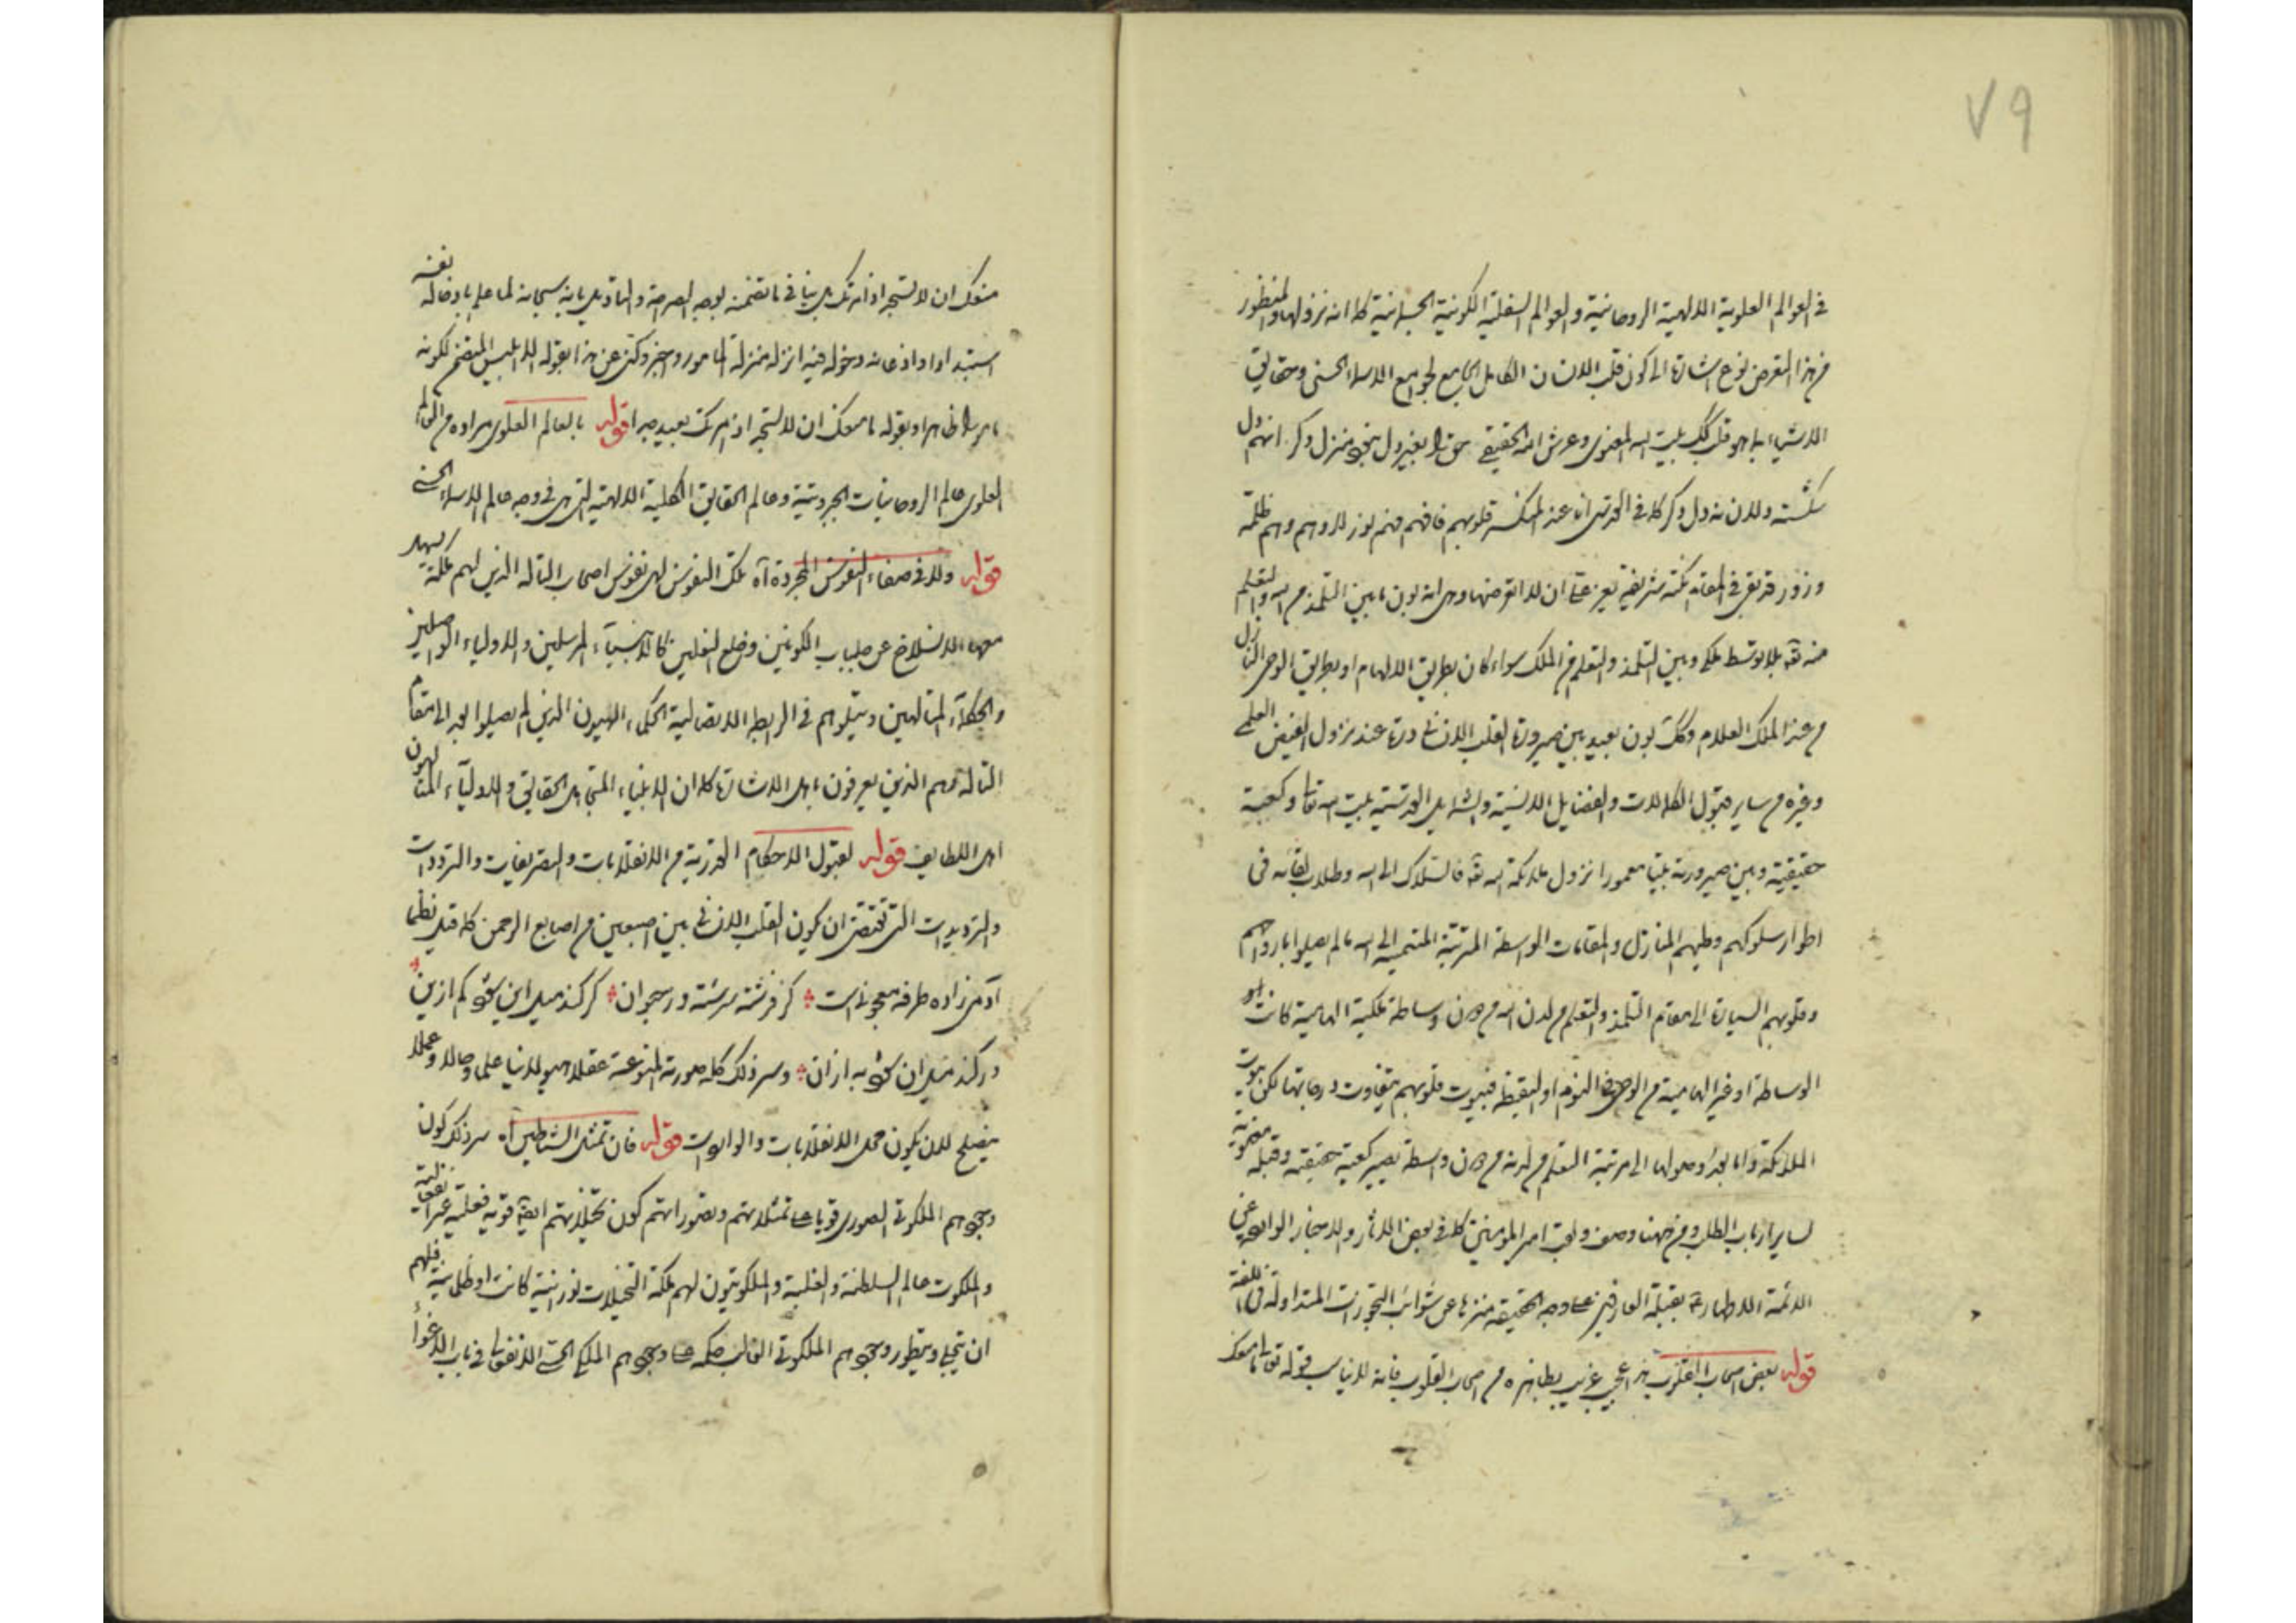 ٧٩
في العوالم العلوية الالهية الروحانية والعوالم السفلية الكونية الجسمانية كما انه نزولها والمنظور
من هذا المعرض نوع اشارة الى كون قلب الانسان الكامل الجامع لجوامع الاسماء الحسنى وحقايق
الاشياء بما هو قلب كك بيت الله المعنوي وعرش الله الحقيقي بغير دل منزل دكر انهم دل
شكسته وللان نه دل دكر كما في القدسي انا عند المنكسرة قلوبهم فافهم فهم نور لا وهم وهم ظلمة
ان لا اتعرضها وهي انه بون ما بين التلمذ من الله والتعلم
منه تع بلا توسط ملك وبين التلمذ والتعلم من الملك سواء كان بطريق الالهام او بطريق الوحي النازل
من عند الملك العلام وكك بون بعيد بين صيرورة القلب الانساني عند نزول الفيض العلمي
وغيره من ساير قبول الكمالات والفضايل الانسية والشمايل القدسية بيت الله تعالى وكعبة
حقيقية وبين صيرورته بيتا معمورا نزول ملائكة الله تع فالسلاك الى الله وطلاب لقائه في
اطوار سلوكهم وطيهم المنازل والمقامات الواسطة المترتبة المنتهية الى الله ما لم يصلوا بارواحهم
وقلوبهم السيارة الى مقام التلمذ والتعلم من لدن الله من دون وساطة ملكية الهامية كانت
الوساطة او غير الهامية من الوحي في النوم او اليقظة فبيوت قلوبهم يتفاوت درجاتها لكن بيوت
الملائكة واما بعد وصولها الى مرتبة التعلم من لدنه من دون واسطة تصير كعبة حقيقية وقبلة معنوية
لساير ارباب الطلب ومن ههنا وصف ولقب امير المؤمنين كما في بعض الاثار والاخبار الواردة عن
الائمة الاطهار بقبلة العارفين على وجه الحقيقة منزها عن شوائب التجوزات المتداولة في اللغة
قوله بعض اصحاب القلوب هذا عجيب غريب بظاهره من اصحاب القلوب فانه لا يناسب قوله تعالى ما منعك
منعك ان لا تسجد اذ امرتك بل ينافي ما تضمنه بوجه الصراحة والتاويل بانه سبحانه لما علم بادخاله نفسه
استبدادا واذعانه دخوله فيه انزله منزلة المامور وجبر وكنى عن هذا بقوله الا ابليس المتضمن لكونه
مامورا ظاهرا وبقوله ما منعك ان لا تسجد اذ امرتك بعيد جدا قوله بالعالم العلوي مراده من العالم
العلوي عالم الروحانيات الجبروتية وعالم الحقايق الكلية الالهية التي هي في وجه عالم الاسماء الحسنى
قوله ولا في صفاء النفوس المجردة آه تلك النفوس هي نفوس اصحاب التاله الذين لهم ملكة
الانسلاخ عن جلباب الكونين وخلع النعلين كالانبياء المرسلين والاولياء الواصلين
والحكماء المتالهين ويتلوهم في الربط الاتصالية الحكماء الالهيون الذين لم يصلوا بعد الى مقام
التاله وهم الذين يعرفون باهل الاشارة كما ان الانبياء المتبع اهل الحقايق والاولياء المتالهون
اهل اللطايف قوله لقبول الاحكام القدرية من الانقلابات والتصريفات والترددات
والترديدات التي تقتضي ان يكون القلب الانساني بين اصبعين من اصابع الرحمن كما قيل نظما
آدمي زاده طرفه معجونست كز فرشته سرشته وز حيوان كر كند ميل اين شود كم ازين
ور كند ميل آن شود به ازان وسر ذلك كله صورته المنوعة عقلا هيولانيا علما وحالا وعملا
يصلح لان يكون محل الانقلابات والواردات قوله فان تمثل الشياطين آه سر ذلك كون
وجودهم الملكوتي الصوري قويا على تمثلاتهم وتصوراتهم كون تخيلاتهم ايضا قوية فعلية غير انفعالية
والملكوت عالم السلطنة والغلبة والملكوتيون لهم ملكة التخيلات نورانية كانت او ظلمانية فلهم
ان يتجلى ويتطور وجودهم الملكوتي الغالب حكمه على وجودهم الملكي الحسي الانفعالي في باب الاغواء